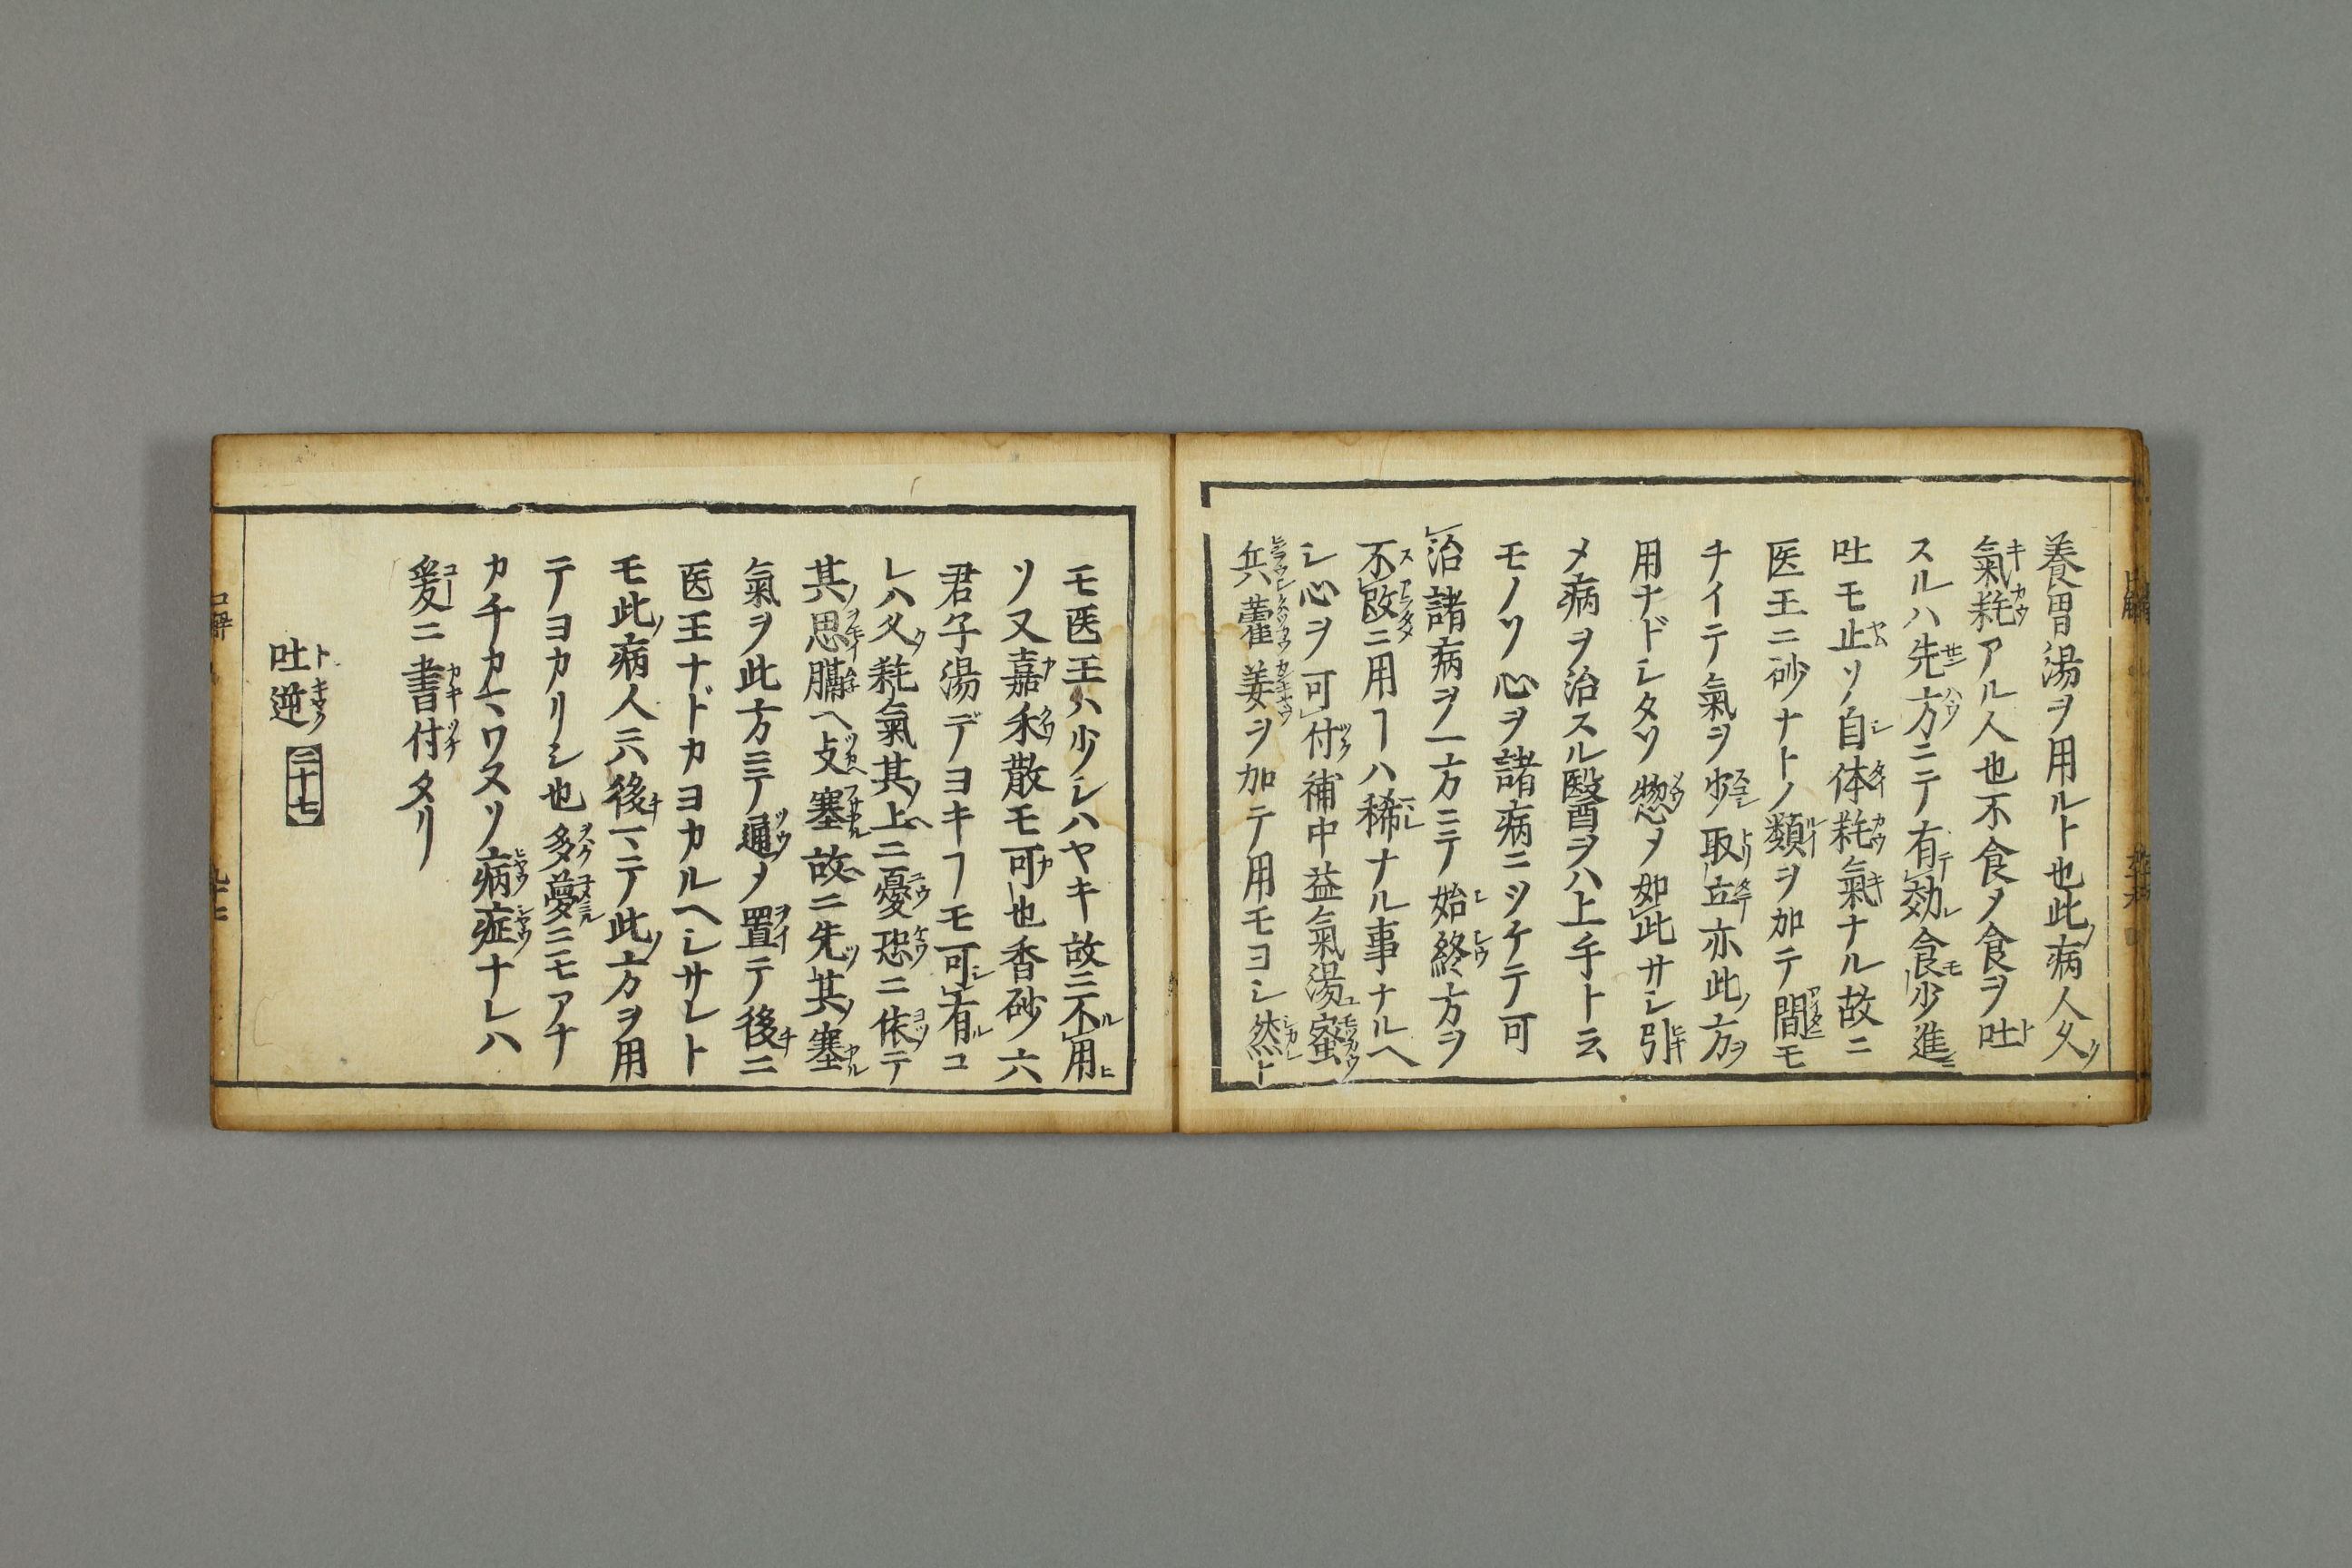 養胃湯ヲ用ルト也此病人久
氣耗アル人也不食メ食ヲ吐
スルハ先方ニテ有効食少進
吐モ止ソ自体耗氣ナル故ニ
医王ニ砂ナトノ類ヲ加テ間モ
チイテ氣ヲ少取立亦此方
用ナドシタソ惣メ如此サシ引
メ病ヲ治スル醫ヲハ上手ト云
モノソ心ヲ諸病ニツケテ可
治諸病ヲ一方ニテ始終方ヲ
不改ニ用ヿハ稀ナル事ナルヘ
シ心ヲ可付補中益氣湯
兵藿姜ヲ加テ用モヨシ然ト
モ医王ハ少シハヤキ故ニ不用
ソ又嘉禾散モ可也香砂六
君子湯デヨキヿモ可有コ
レハ久耗氣其上ニ憂恐ニ依テ
其思臓ヘ支塞故ニ先其塞
氣ヲ此方ニテ通メ置テ後ニ
医王ナドカヨカルヘシサレト
モ此病人ニハ後マテ此方ヲ用
テヨカリシ也多夢ニモアナ
カチカマワヌソ病症ナレハ
爰ニ書付タリ
吐逆 二十七